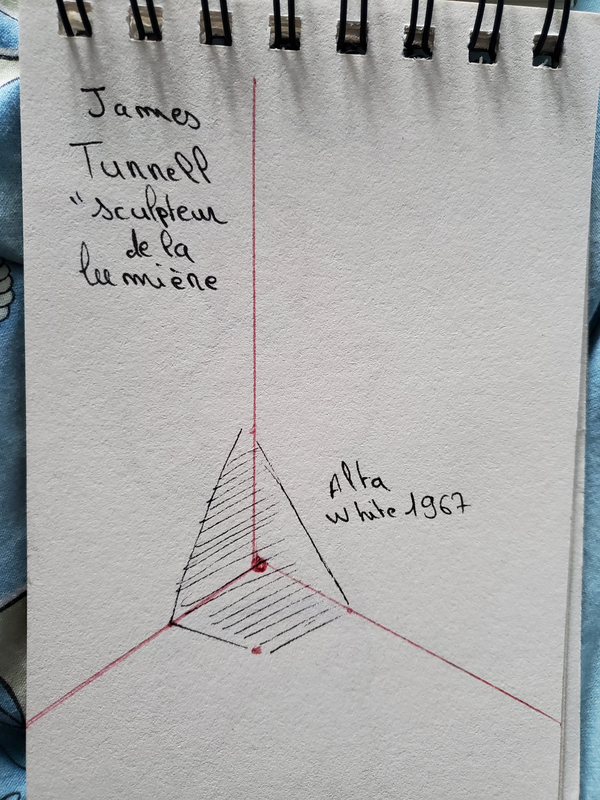 James
Tunnell
"sculpteur
de la
lumière
Alta
White 1967